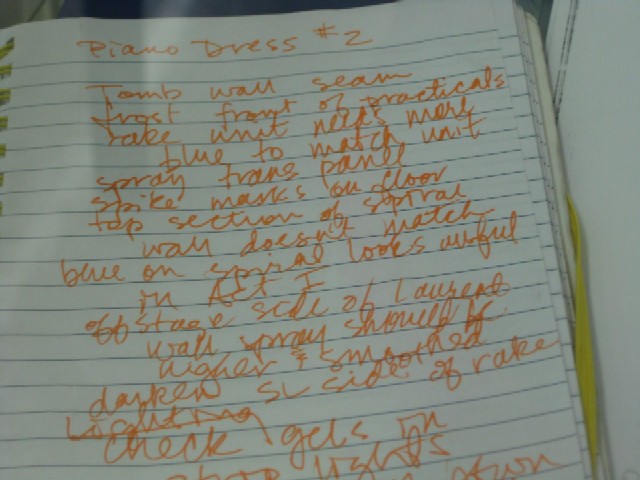 Piano Dress #2
Tomb wall seam
frost front of practicals
rake unit needs more
blue to match unit
spray trans panel
spike marks on floor
top section of spiral
wall doesn't match
blue on spiral looks awful
in Act I
off stage side of Laurent
wall spray should be
higher + smoothed
darken SL side of rake
Lighting
check gels in
lights